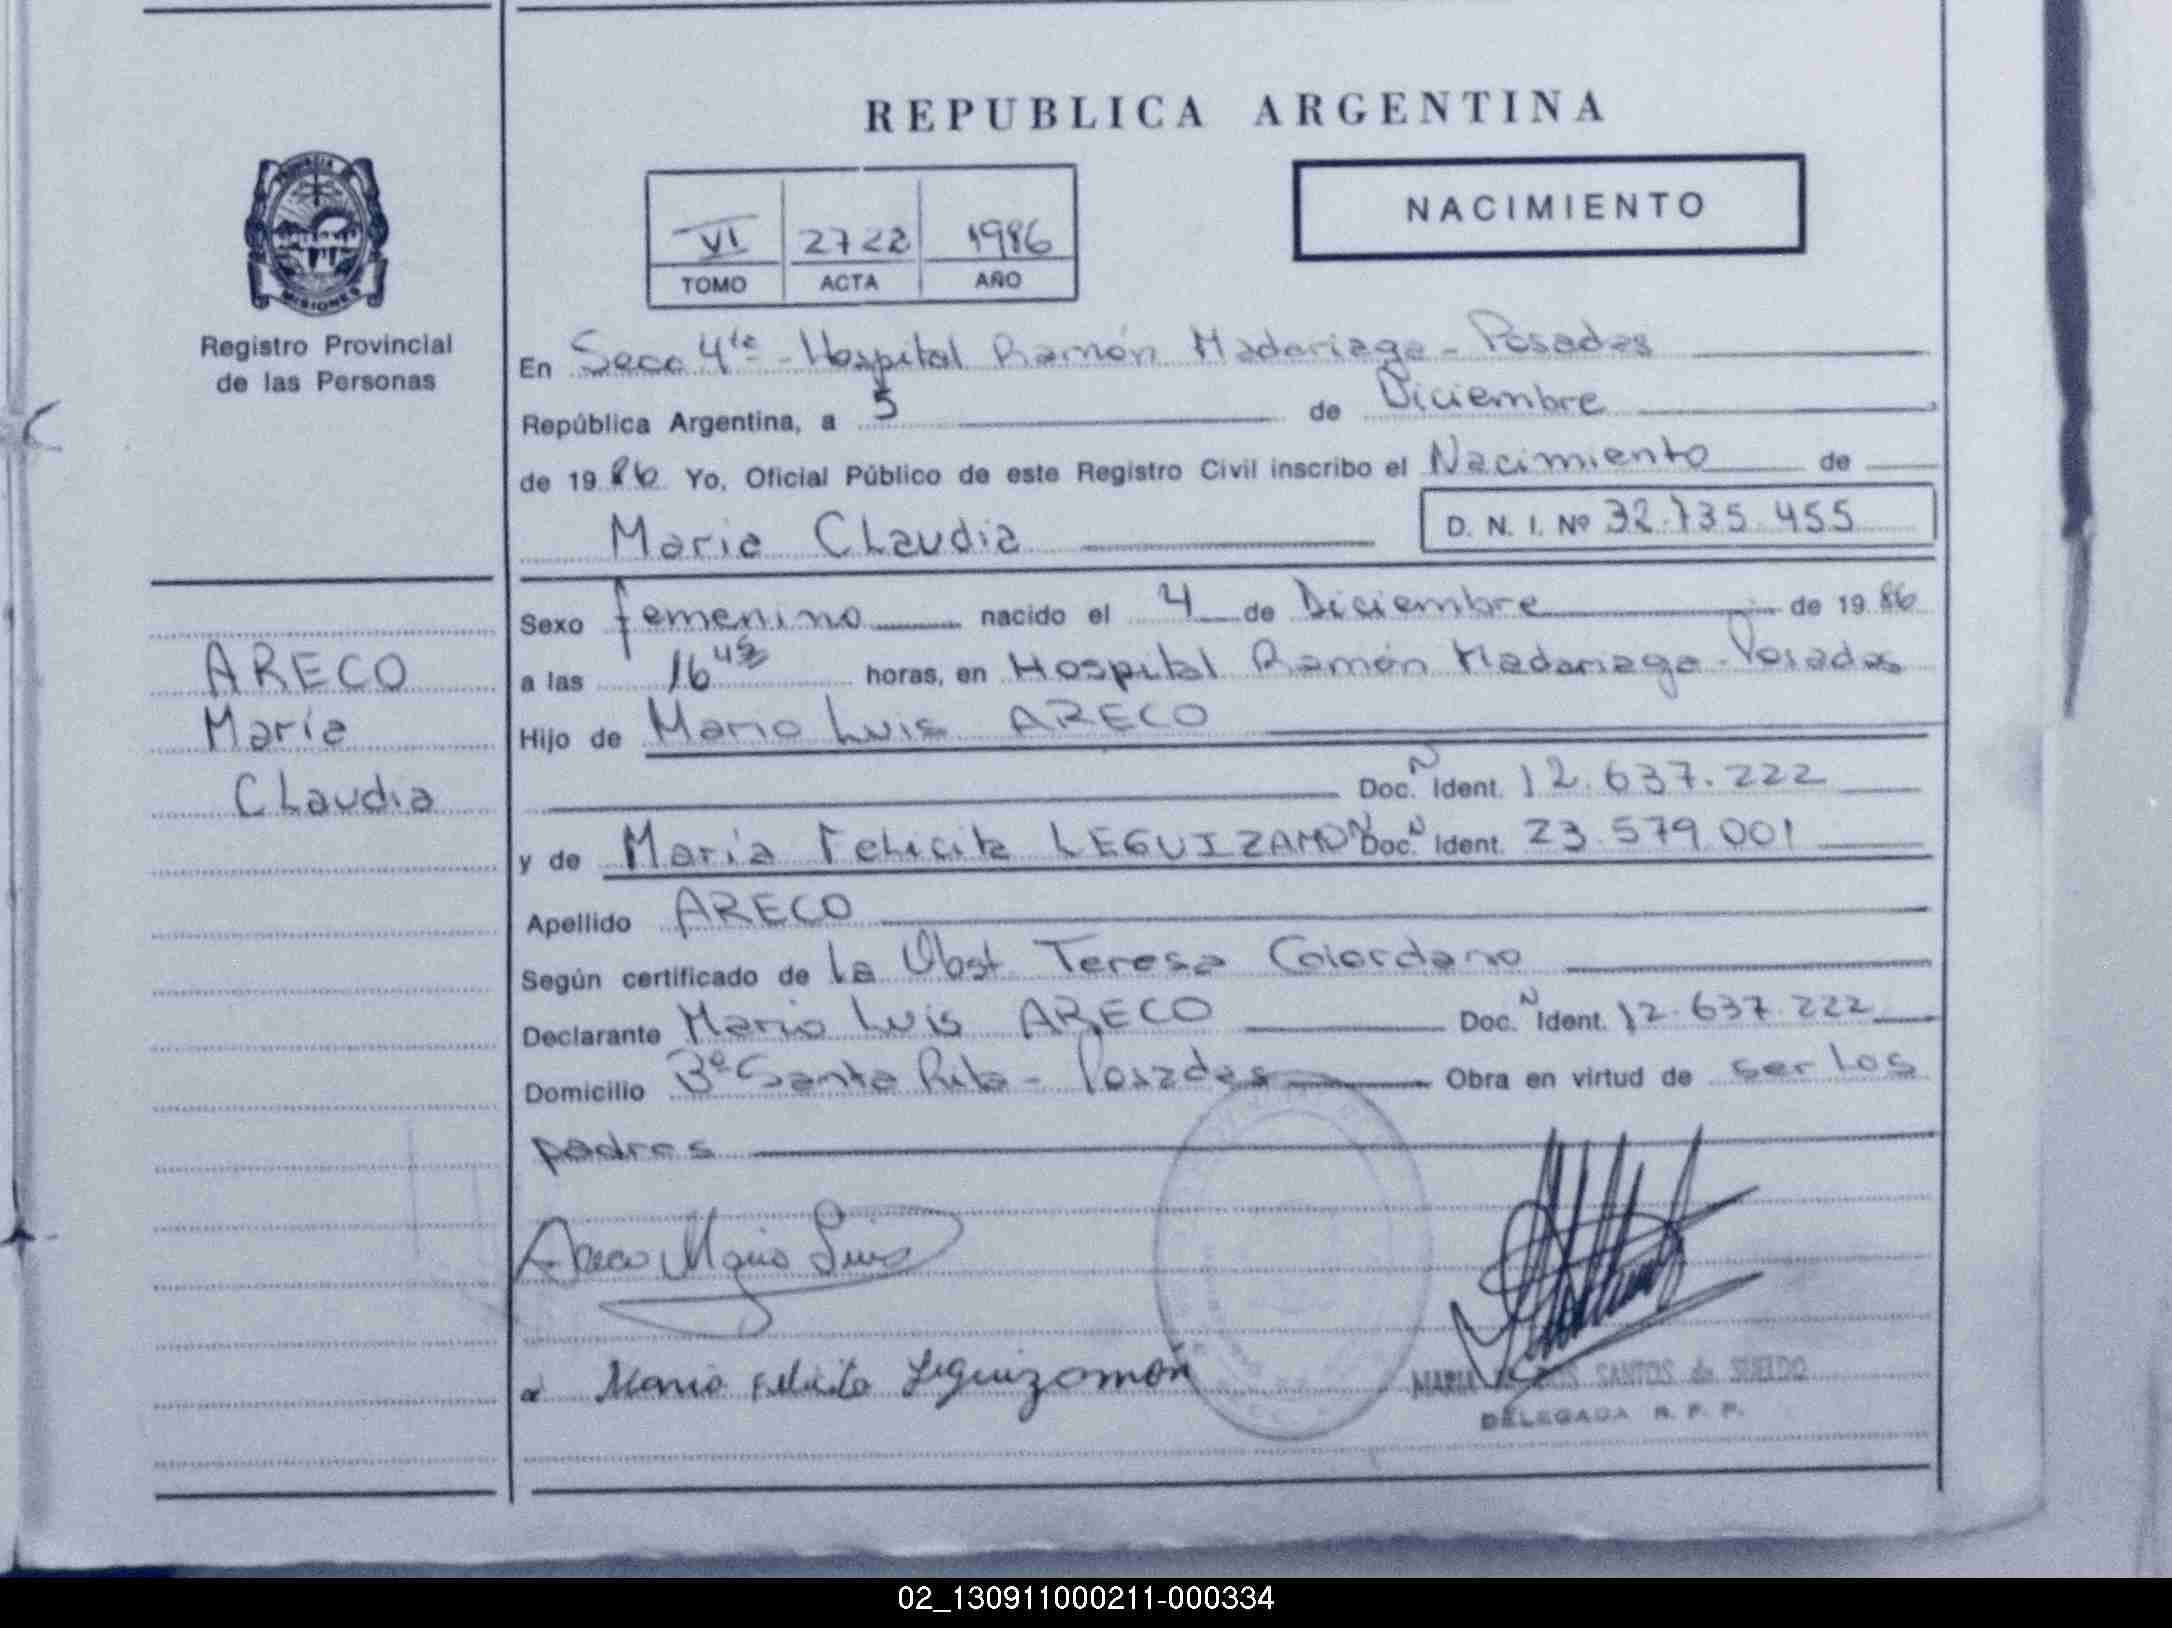 REPUBLICA ARGENTINA
PROVINCIA DE
MISIONES
Registro Provincial
de las Personas
VI 2722 1986
TOMO ACTA AÑO
NACIMIENTO
En Secc 4ta - Hospital Ramón Madariaga - Posadas
República Argentina, a 5 de Diciembre
de 1986 Yo, Oficial Público de este Registro Civil inscribo el Nacimiento de
Maria Claudia D. N. I. Nº 32.735.455
ARECO
María
Claudia
Sexo femenino nacido el 4 de Diciembre de 1986
a las 16 horas, en Hospital Ramón Madariaga - Posadas
Hijo de Mario Luis ARECO
Doc. N Ident. 12.637.222
y de María Felicita LEGUIZAMON Doc. N Ident. 23.579.001
Apellido ARECO
Según certificado de la Obst Teresa
Declarante Mario Luis ARECO Doc. N Ident. 12.637.222
Domicilio Bº Santa Rita - Posadas Obra en virtud de ser los
padres
Areco Mario Luis
Maria Felicita Leguizamón
MARIA SANTOS de SUELDO
DELEGADA R. P. P.
02_130911000211-000334